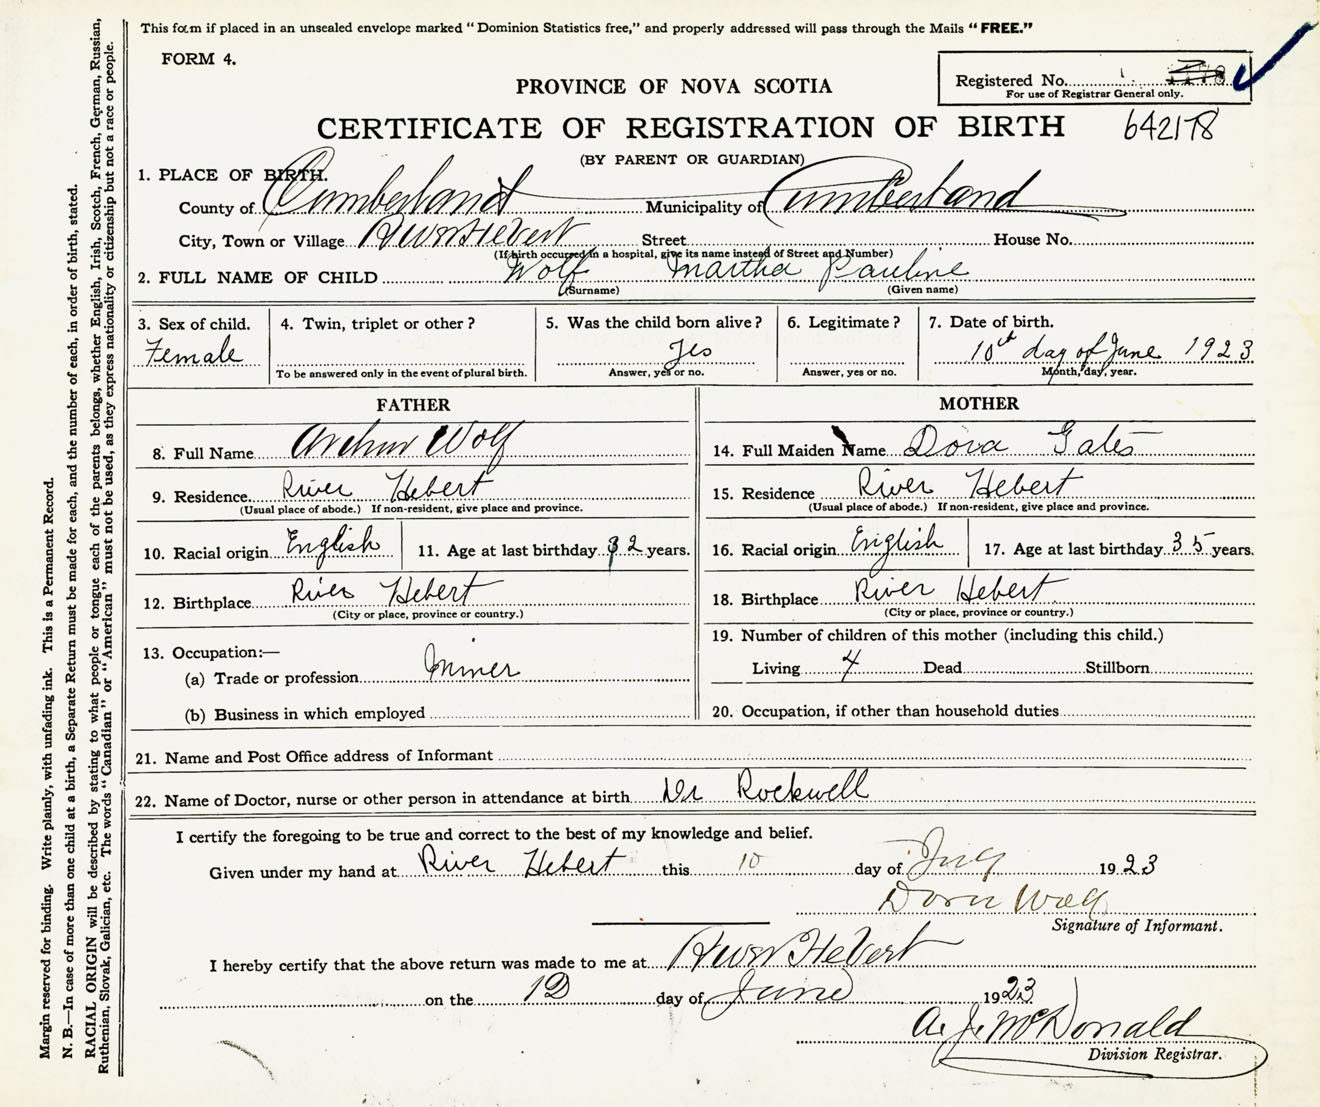 This form if placed in an unsealed envelope marked "Dominion Statistics free," and properly addressed will pass through the Mails "FREE."
FORM 4.
Registered No.
For use of Registrar General only.
PROVINCE OF NOVA SCOTIA
CERTIFICATE OF REGISTRATION OF BIRTH 642178
(BY PARENT OR GUARDIAN)
1. PLACE OF BIRTH.
County of Cumberland Municipality of Cumberland
City, Town or Village River Hebert Street House No.
(If birth occurred in a hospital, give its name instead of Street and Number)
2. FULL NAME OF CHILD Wolf Martha Pauline
(Surname) (Given name)
3. Sex of child. 4. Twin, triplet or other? 5. Was the child born alive? 6. Legitimate? 7. Date of birth.
Female Yes 10th day of June 1923
To be answered only in the event of plural birth. Answer, yes or no. Answer, yes or no. Month, day, year.
FATHER
8. Full Name Arthur Wolf
9. Residence. River Hebert
(Usual place of abode.) If non-resident, give place and province.
10. Racial origin English 11. Age at last birthday 32 years.
12. Birthplace River Hebert
(City or place, province or country.)
13. Occupation:—
(a) Trade or profession Miner
(b) Business in which employed
MOTHER
14. Full Maiden Name Dora Gates
15. Residence River Hebert
(Usual place of abode.) If non-resident, give place and province.
16. Racial origin English 17. Age at last birthday 35 years.
18. Birthplace River Hebert
(City or place, province or country.)
19. Number of children of this mother (including this child.)
Living 4 Dead Stillborn
20. Occupation, if other than household duties
21. Name and Post Office address of Informant
22. Name of Doctor, nurse or other person in attendance at birth Dr Rockwell
I certify the foregoing to be true and correct to the best of my knowledge and belief.
Given under my hand at River Hebert this 10 day of 1923
Dora Wolf
Signature of Informant.
I hereby certify that the above return was made to me at River Hebert
on the 12 day of June 1923
A. J. McDonald
Division Registrar.
Margin reserved for binding. Write plainly, with unfading ink. This is a Permanent Record.
N. B.—In case of more than one child at a birth, a Separate Return must be made for each, and the number of each, in order of birth, stated.
RACIAL ORIGIN will be described by stating to what people or tongue each of the parents belongs, whether English, Irish, Scotch, French, German, Russian,
Ruthenian, Slovak, Galician, etc. The words "Canadian" or "American" must not be used, as they express nationality or citizenship but not a race or people.